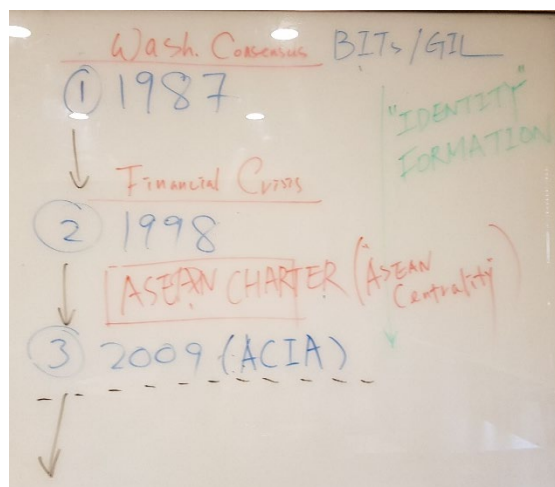 Wash. Consensus BITs/GIL
① 1987
"IDENTITY"
FORMATION
Financial Crisis
② 1998
ASEAN CHARTER ("ASEAN
Centrality")
③ 2009 (ACIA)